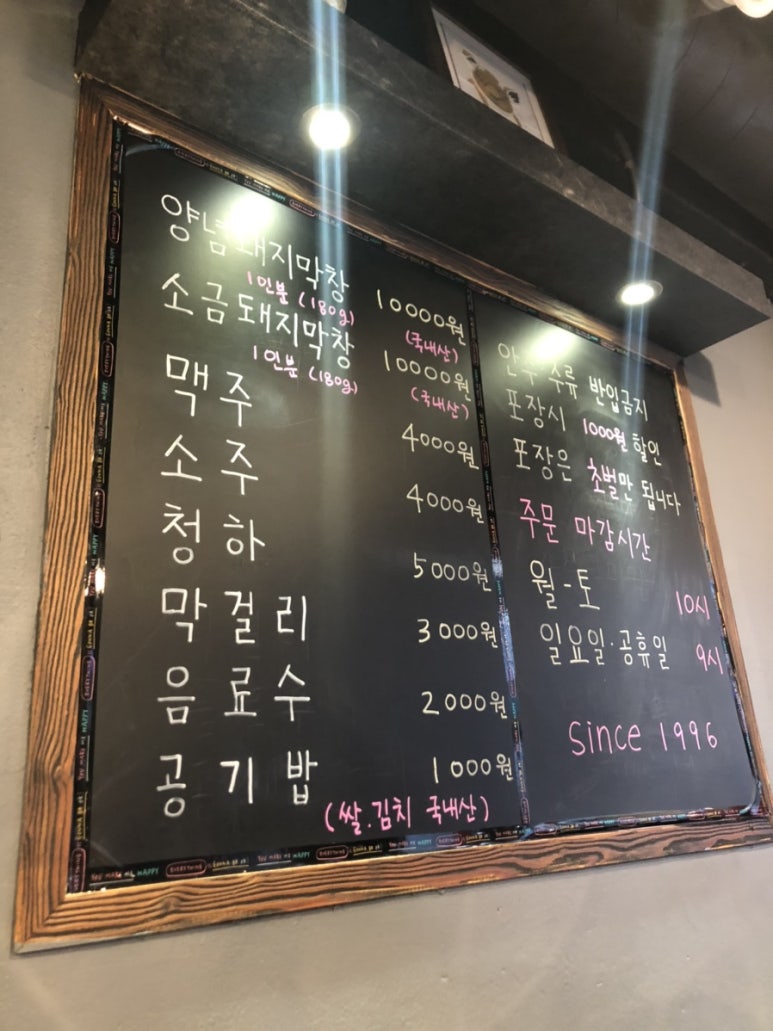 양념돼지막창 10000원
1인분 (180g) (국내산)
소금돼지막창 10000원
1인분 (180g) (국내산)
맥주 4000원
소주 4000원
청하 5000원
막걸리 3000원
음료수 2000원
공기밥 1000원
(쌀.김치 국내산)
안주 주류 반입금지
포장시 1000원 할인
포장은 초벌만 됩니다
주문 마감시간
월-토 10시
일요일·공휴일 9시
Since 1996